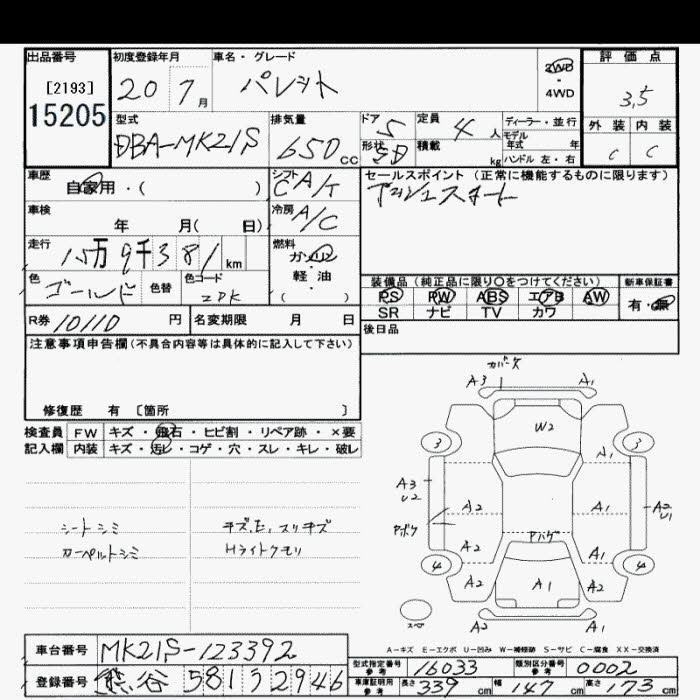 出品番号 初度登録年月 車名・グレード 評価点
[2193] 20 7月 パレット 2WD・4WD 3,5
15205
型式 排気量 ドア 定員 ディーラー・並行 外装 内装
DBA-MK21S 650cc 5 4人 モデル年式 年 C C
形状 5D 積載 kg ハンドル 左・右
車歴 シフト セールスポイント(正常に機能するものに限ります)
自家用・( ) CA/T プッシュスタート
車検 冷房
年 月( 日) A/C
走行 燃料
15万9千381km ガソリン
色 色替 色コード 軽・油
ゴールド ZDK ( )
装備品(純正品に限り○をつけてください) 新車保証書
PS PW ABS エアB AW 有・無
SR ナビ TV カワ
R券 10110円 名変期限 月 日 後日品
注意事項申告欄(不具合内容等は具体的に記入して下さい)
修復歴 有 〔箇所 〕
検査員 FW キズ・飛石・ヒビ割・リペア跡・×要
記入欄 内装 キズ・汚レ・コゲ・穴・スレ・キレ・破レ
シートシミ
カーペットシミ
キズ,E,スリキズ
Hライトクモリ
カバーケ
A3 A1
W2
3 3
A1
A3 U2 A2 A1 A2 U1
Pボケ Pハゲ
A2 A1
4 4
A2 A1 A2
スペア A2 A1
A-キズ E-エクボ U-凹み W-補修跡 S-サビ C-腐食 XX-交換済
車台番号 MK21S-123392
型式指定番号 参考 16033 類別区分番号 参考 0002
登録番号 熊谷 581 2946
車庫証明用 参考 長さ 339cm 幅 147cm 高さ 173cm